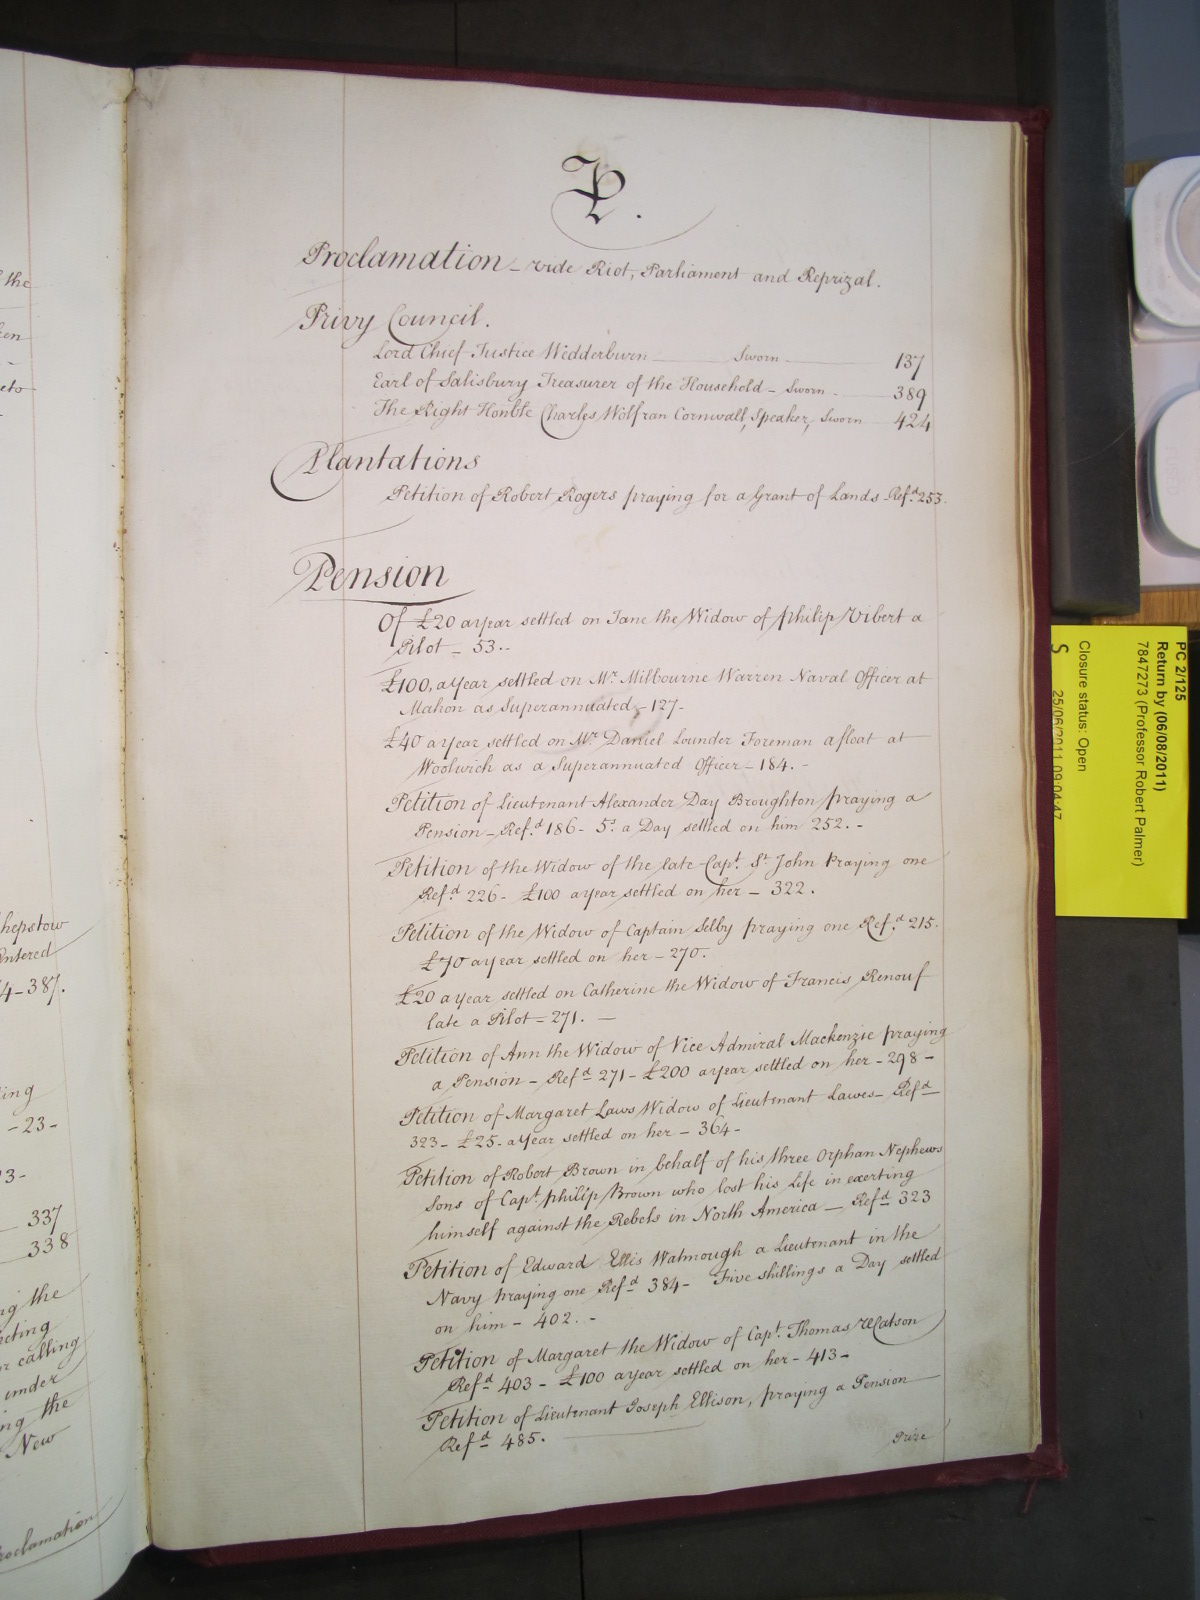 f the
ken
eto
hepstow
Entered
4-387.
ing
-23-
93-
337
338
ng the
ecting
or calling
under
ng the
New
roclamation
P.
Proclamation - vide Riot, Parliament and Reprizal.
Privy Council.
Lord Chief Justice Wedderburn — Sworn — 137
Earl of Salisbury Treasurer of the Household - Sworn - 389
The Right Honble Charles Wolfran Cornwall, Speaker, Sworn 424
Plantations
Petition of Robert Rogers praying for a Grant of Lands Refd. 253.
Pension
Of £20 a year settled on Jane the Widow of Philip Vibert a
Pilot - 53.-
£100, a year settled on Mr. Milbourne Warren Naval Officer at
Mahon as Superannuated - 127-
£40 a year settled on Mr Daniel Lounder Foreman afloat at
Woolwich as a Superannuated Officer - 184. -
Petition of Lieutenant Alexander Day Broughton praying a
Pension - Ref.d 186 - 5s. a Day settled on him 252. -
Petition of the Widow of the late Capt. St. John Praying one
Ref.d 226 - £100 a year settled on her - 322.
Petition of the Widow of Captain Selby praying one Ref.d 215.
£70 a year settled on her - 270.
£20 a year settled on Catherine the Widow of Francis Renouf
late a Pilot - 271. —
Petition of Ann the Widow of Vice Admiral Mackenzie praying
a Pension - Refd 271 - £200 a year settled on her - 298 -
Petition of Margaret Laws Widow of Lieutenant Lawes - Refd
323 - £25. a Year settled on her - 364 -
Petition of Robert Brown in behalf of his three Orphan Nephews
Sons of Capt. Philip Brown who lost his Life in exerting
himself against the Rebels in North America — Refd 323
Petition of Edward Ellis Watmough a Lieutenant in the
Navy praying one Refd 384 - Five shillings a Day settled
on him - 402. -
Petition of Margaret the Widow of Capt. Thomas Watson
Refd 403 - £100 a year settled on her - 413 -
Petition of Lieutenant Joseph Ellison, praying a Pension
Refd 485.
Prize
PC 2/125
Return by (06/08/2011)
7847273 (Professor Robert Palmer)
Closure status: Open
S 25/06/2011 09:04:47